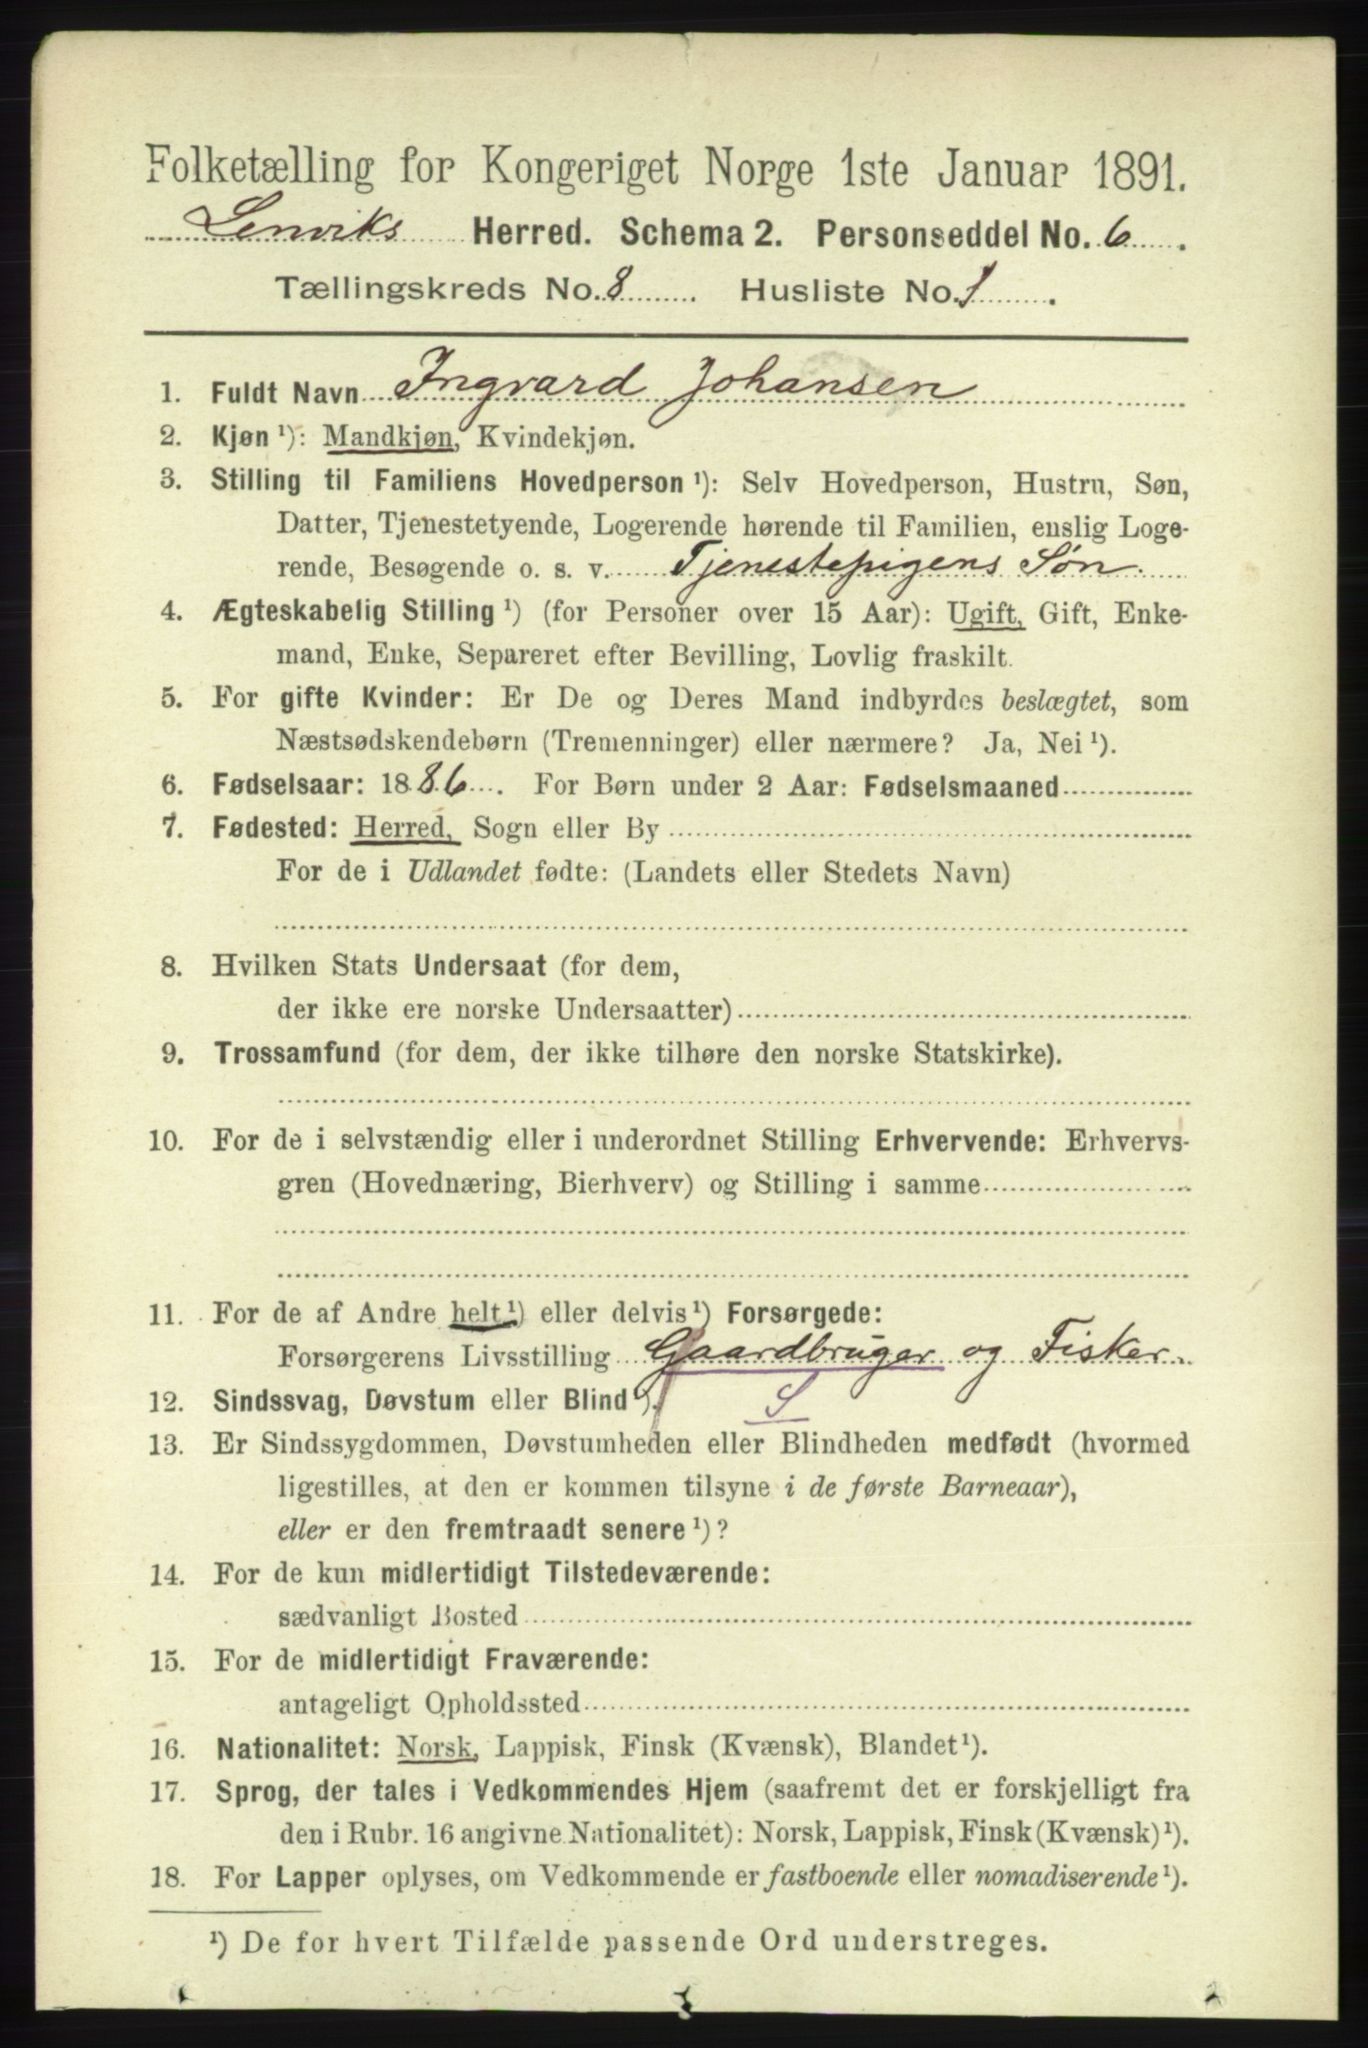 Folketælling for Kongeriget Norge 1ste Januar 1891.
Lenviks Herred. Schema 2. Personseddel No. 6.
Tællingskreds No. 8 Husliste No. 1.
1. Fuldt Navn Ingvard Johansen
2. Kjøn ¹): Mandkjøn, Kvindekjøn.
3. Stilling til Familiens Hovedperson ¹): Selv Hovedperson, Hustru, Søn,
Datter, Tjenestetyende, Logerende hørende til Familien, enslig Loge-
rende, Besøgende o. s. v. Tjenestepigens Søn.
4. Ægteskabelig Stilling ¹) (for Personer over 15 Aar): Ugift, Gift, Enke-
mand, Enke, Separeret efter Bevilling, Lovlig fraskilt.
5. For gifte Kvinder: Er De og Deres Mand indbyrdes beslægtet, som
Næstsødskendebørn (Tremenninger) eller nærmere? Ja, Nei ¹).
6. Fødselsaar: 1886. For Børn under 2 Aar: Fødselsmaaned
7. Fødested: Herred, Sogn eller By
For de i Udlandet fødte: (Landets eller Stedets Navn)
8. Hvilken Stats Undersaat (for dem,
der ikke ere norske Undersaatter)
9. Trossamfund (for dem, der ikke tilhøre den norske Statskirke).
10. For de i selvstændig eller i underordnet Stilling Erhvervende: Erhvervs-
gren (Hovednæring, Bierhverv) og Stilling i samme
11. For de af Andre helt ¹) eller delvis ¹) Forsørgede:
Forsørgerens Livsstilling Gaardbruger og Fisker.
12. Sindssvag, Døvstum eller Blind ¹). S
13. Er Sindssygdommen, Døvstumheden eller Blindheden medfødt (hvormed
ligestilles, at den er kommen tilsyne i de første Barneaar),
eller er den fremtraadt senere ¹)?
14. For de kun midlertidigt Tilstedeværende:
sædvanligt Bosted
15. For de midlertidigt Fraværende:
antageligt Opholdssted
16. Nationalitet: Norsk, Lappisk, Finsk (Kvænsk), Blandet ¹).
17. Sprog, der tales i Vedkommendes Hjem (saafremt det er forskjelligt fra
den i Rubr. 16 angivne Nationalitet): Norsk, Lappisk, Finsk (Kvænsk) ¹).
18. For Lapper oplyses, om Vedkommende er fastboende eller nomadiserende ¹).
¹) De for hvert Tilfælde passende Ord understreges.